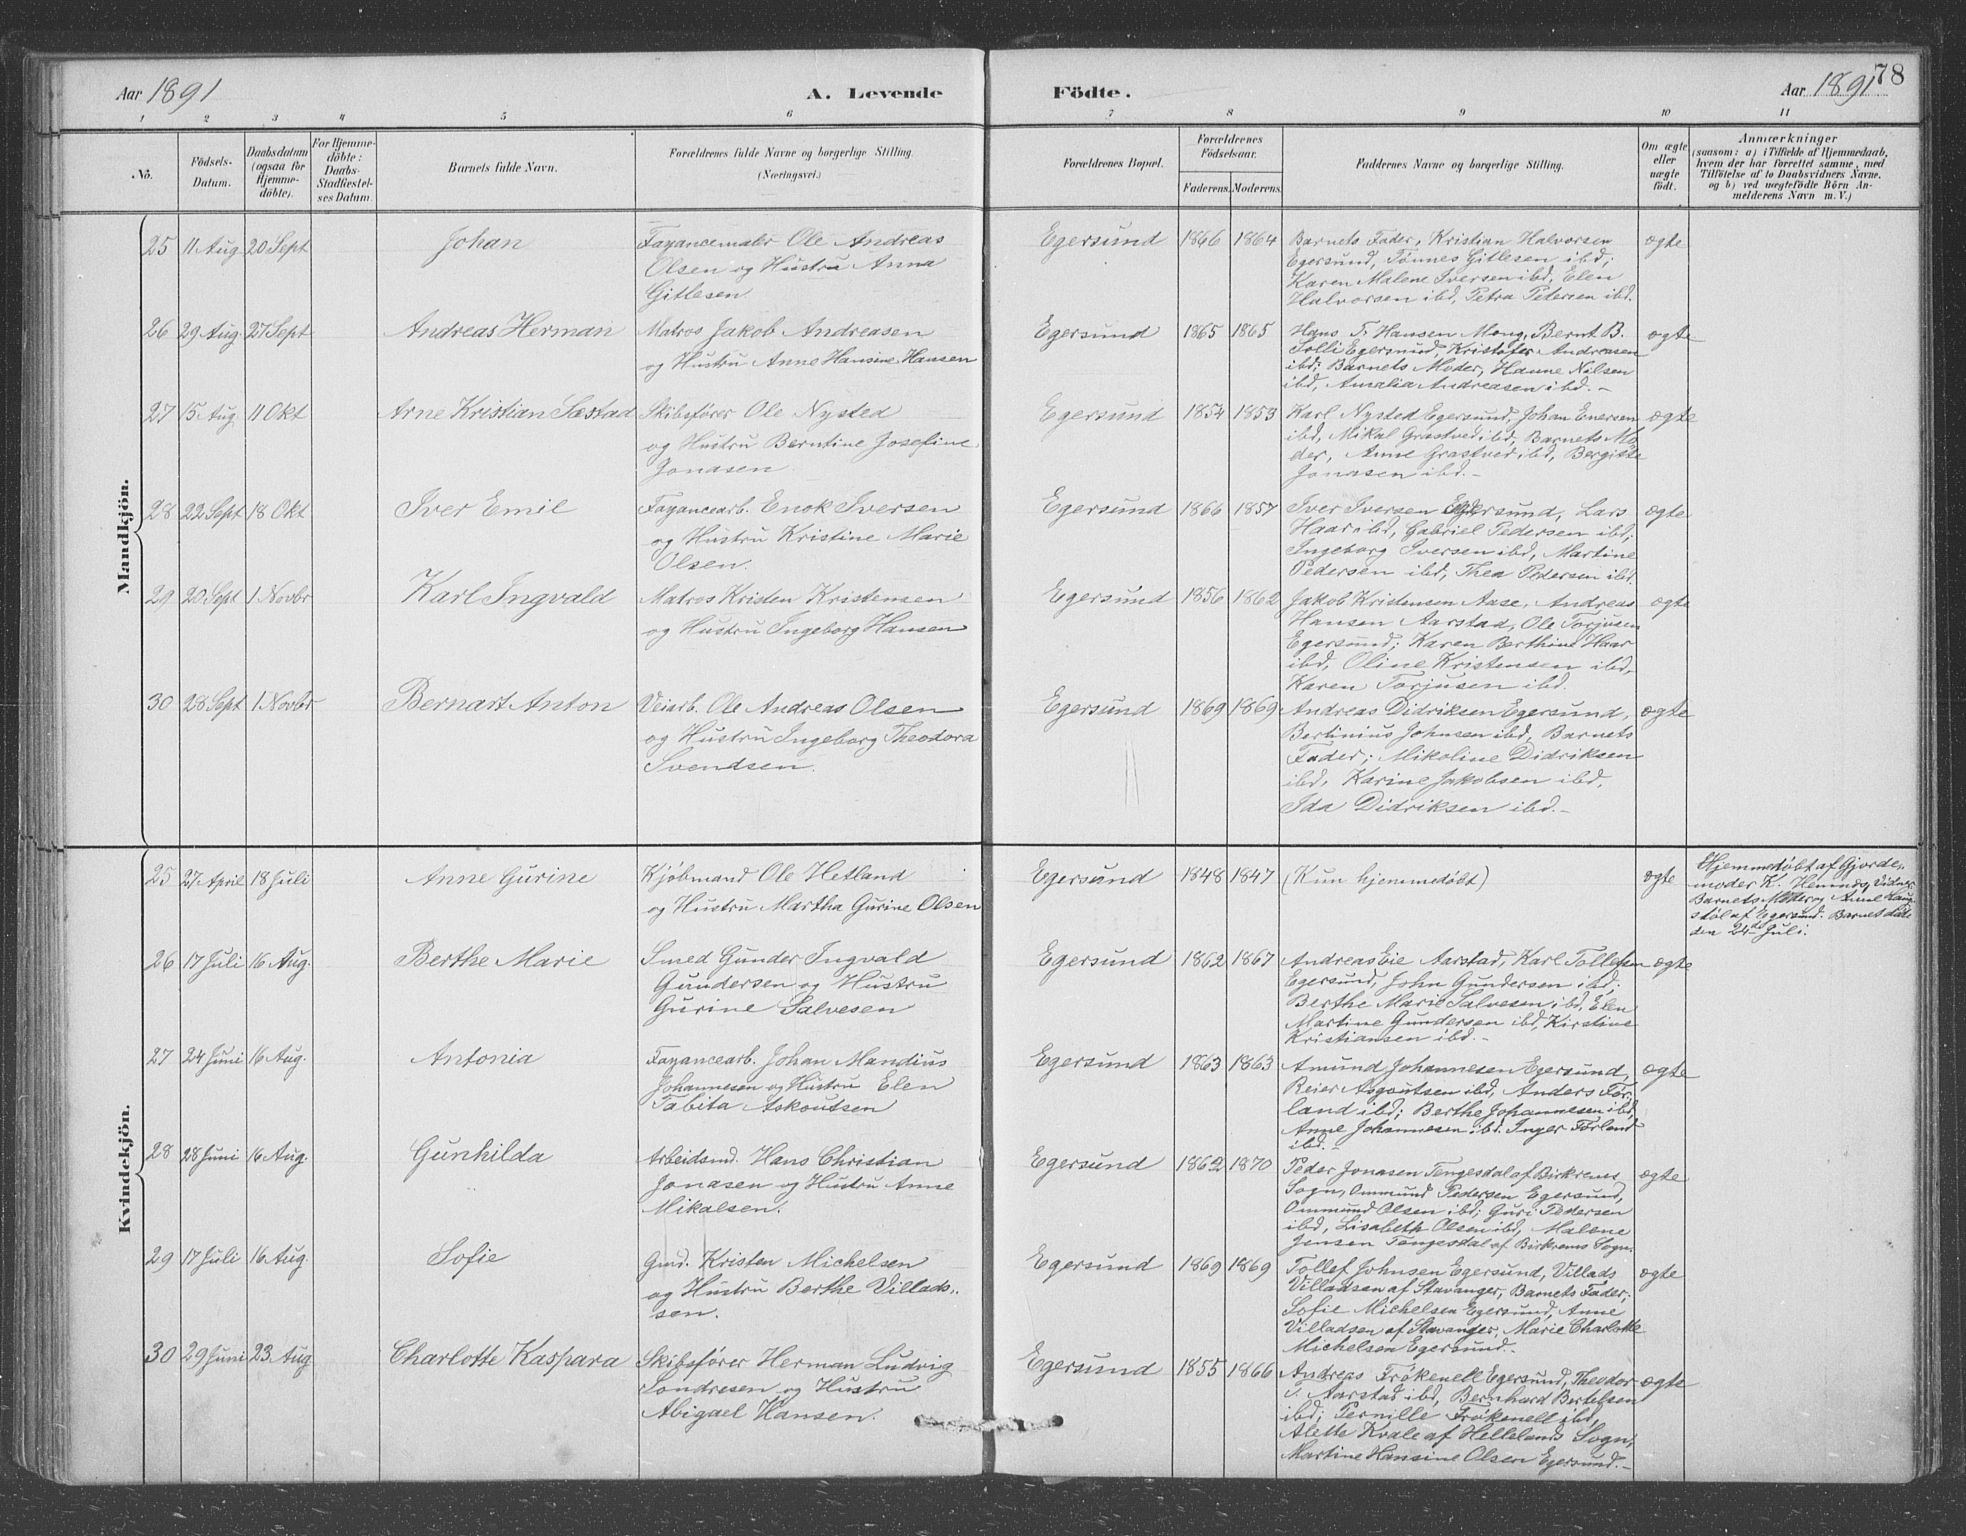 Aar 1891
A. Levende
Födte.
Aar 1891
78
1 2 3 4 5 6 7 8 9 10 11
No.
Födsels-
Datum.
Daabsdatum
(ogsaa for
Hjemme-
döbte).
For Hjemme-
döbte:
Daabs-
Stadfæstel-
ses Datum.
Barnets fulde Navn.
Forældrenes fulde Navne og borgerlige Stilling.
(Næringsvei.)
Forældrenes Bopæl.
Forældrenes
Födselsaar.
Faderens. Moderens.
Faddernes Navne og borgerlige Stilling.
Om ægte
eller
uægte
födt.
Anmærkninger
(saasom: a) i Tilfælde af Hjemmedaab,
hvem der har forrettet samme, med
Tilföielse af to Daabsvidners Navne,
og b) ved uægtefödte Börn An-
melderens Navn m. V.)
Mandkjön.
25 11 Aug 20 Sept
Johan
Fayancemaler Ole Andreas
Olsen og Hustru Anna
Gitlesen
Egersund 1866 1864
Barnets Fader, Kristian Halvorsen
Egersund, Tønnes Gitlesen ibd;
Karen Malene Iversen ibd, Elen
Halvorsen ibd, Petra Petersen ibd.
ægte
26 29 Aug 27 Sept
Andreas Herman
Matros Jakob Andreasen
og Hustru Anne Hansine Hansen
Egersund 1865 1865
Hans T. Hansen Mong, Bernt B.
Solli Egersund, Kristofer Andreasen
ibd; Barnets Moder, Hanne Nilsen
ibd, Amalia Andreasen ibd.-
ægte
27 15 Aug 11 Okt
Arne Kristian Sæstad
Skibsfører Ole Nysted
og Hustru Berntine Josefine
Jonasen
Egersund 1854 1853
Karl Nysted Egersund, Johan Enersen
ibd, Mikal Grastved ibd, Barnets Mo
der, Anne Grastved ibd, Bergitte
Jonasen ibd.-
ægte
28 22 Sept 18 Okt
Iver Emil
Fayancearb. Enok Iversen
og Hustru Kristine Marie
Olsen.
Egersund 1866 1857
Iver Iversen Egersund, Lars
Haar ibd, Gabriel Pedersen ibd;
Ingeborg Iversen ibd, Martine
Pedersen ibd, Thea Pedersen ibd.
ægte
29 20 Sept 1 Novbr
Karl Ingvald
Matros Kristen Kristensen
og Hustru Ingeborg Hansen
Egersund 1856 1862
Jakob Kristensen Aase, Andreas
Hansen Aarstad, Ole Torjusen
Egersund; Karen Berthine Haar
ibd, Oline Kristensen ibd,
Karen Torjusen ibd.
ægte
30 28 Sept 1 Novbr
Bernart Anton
Veiarb. Ole Andreas Olsen
og Hustru Ingeborg Theodora
Svendsen.
Egersund 1869 1869
Andreas Didriksen Egersund,
Bertinius Johnsen ibd, Barnets
Fader; Mikoline Didriksen
ibd, Karine Jakobsen ibd,
Ida Didriksen ibd.-
ægte
Kvindekjön.
25 27 April 18 Juli
Anne Gurine
Kjøbmand Ole Hetland
og Hustru Martha Gurine Olsen
Egersund 1848 1847
(Kun hjemmedøbt)
ægte
Hjemmedøbt af Gjorde-
moder K. Vidner
Barnets Moder og Anne
af Egersund. Barnet
24de Juli.
26 17 Juli 16 Aug.
Berthe Marie
Smed Gunder Ingvald
Gundersen og Hustru
Gurine Salvesen
Egersund 1862 1867
Andreas Eie Aarstad, Karl Tollefsen
Egersund, John Gundersen ibd;
Berthe Marie Salvesen ibd, Elen
Martine Gundersen ibd, Kirstine
Kristiansen ibd.-
ægte
27 24 Juni 16 Aug.
Antonia
Fayancearb. Johan Mandius
Johannesen og Hustru Elen
Tabita Askoutsen
Egersund 1863 1863
Amund Johannesen Egersund,
Reier Asgoutsen ibd, Anders Før-
land ibd; Berthe Johannesen ibd,
Anne Johannesen ibd. Inger Førland
ibd.-
ægte
28 28 Juni 16 Aug.
Gunhilda
Arbeidsmd. Hans Christian
Jonasen og Hustru Anne
Mikalsen.
Egersund 1862 1870
Peder Jonasen Tengesdal af Birkrems
Sogn, Ommund Pedersen Egersund,
Ommund Olsen ibd; Guri Pedersen
ibd, Lisabeth Olsen ibd, Malene
Jensen Tengesdal af Birkrems Sogn.
ægte
29 17 Juli 16 Aug.
Sofie
Gmd. Kristen Michelsen
og Hustru Berthe Villads-
sen.
Egersund 1869 1869
Tollef Johnsen Egersund, Villads
Villadsen af Stavanger, Barnets Fader;
Sofie Michelsen Egersund, Anne
Villadsen af Stavanger, Marie Charlotte
Michelsen Egersund.-
ægte
30 29 Juni 23 Aug
Charlotte Kaspara
Skibsfører Herman Ludvig
Sondresen og Hustru
Abigael Hansen.
Egersund 1855 1866
Andreas Frøkenell Egersund, Theodor
T. Aarstad ibd, Bernhard Bertelsen
ibd; Pernille Frøkenell ibd,
Alette Kvale af Hellelands Sogn,
Martine Hansine Olsen Egersund.-
ægte